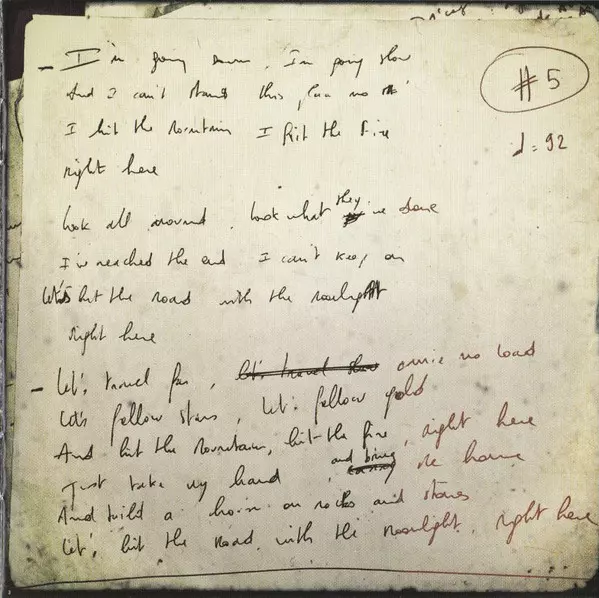 #5
♩= 92
- I'm going down, I'm going slow
And I can't stand this place no
I hit the mountain I hit the fire
right here
Look all around, look what they 've done
I've reached the end I can't keep on
Let's hit the road with the moonlight
right here
- Let's travel far, let's travel slow carrie no load
Let's follow stars, let's follow gold
And hit the mountain, hit the fire, right here
Just take my hand, and bring me home
And build a on rocks and stones
Let's hit the road with the moonlight, right here